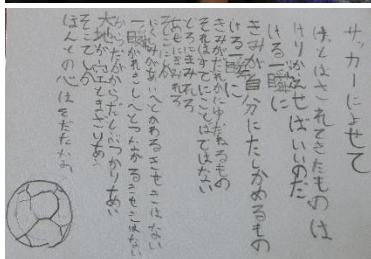 サッカーによせて
けとばされてきたものは
けりかえせばいいのだ
ける一瞬に
きみが自分にたしかめるもの
ける一瞬に
きみがだれかにゆだねるもの
それはすでにことばではない
どろにまみれろ
あせにまみれろ
そこにしか
にくしみがあいへとかわるきせきはない
一瞬がれきしへとつながるきせきはない
からだがからだとぶつかりあい
大地が空とまざりあう
そこでしか
ほんとの心はそだたない